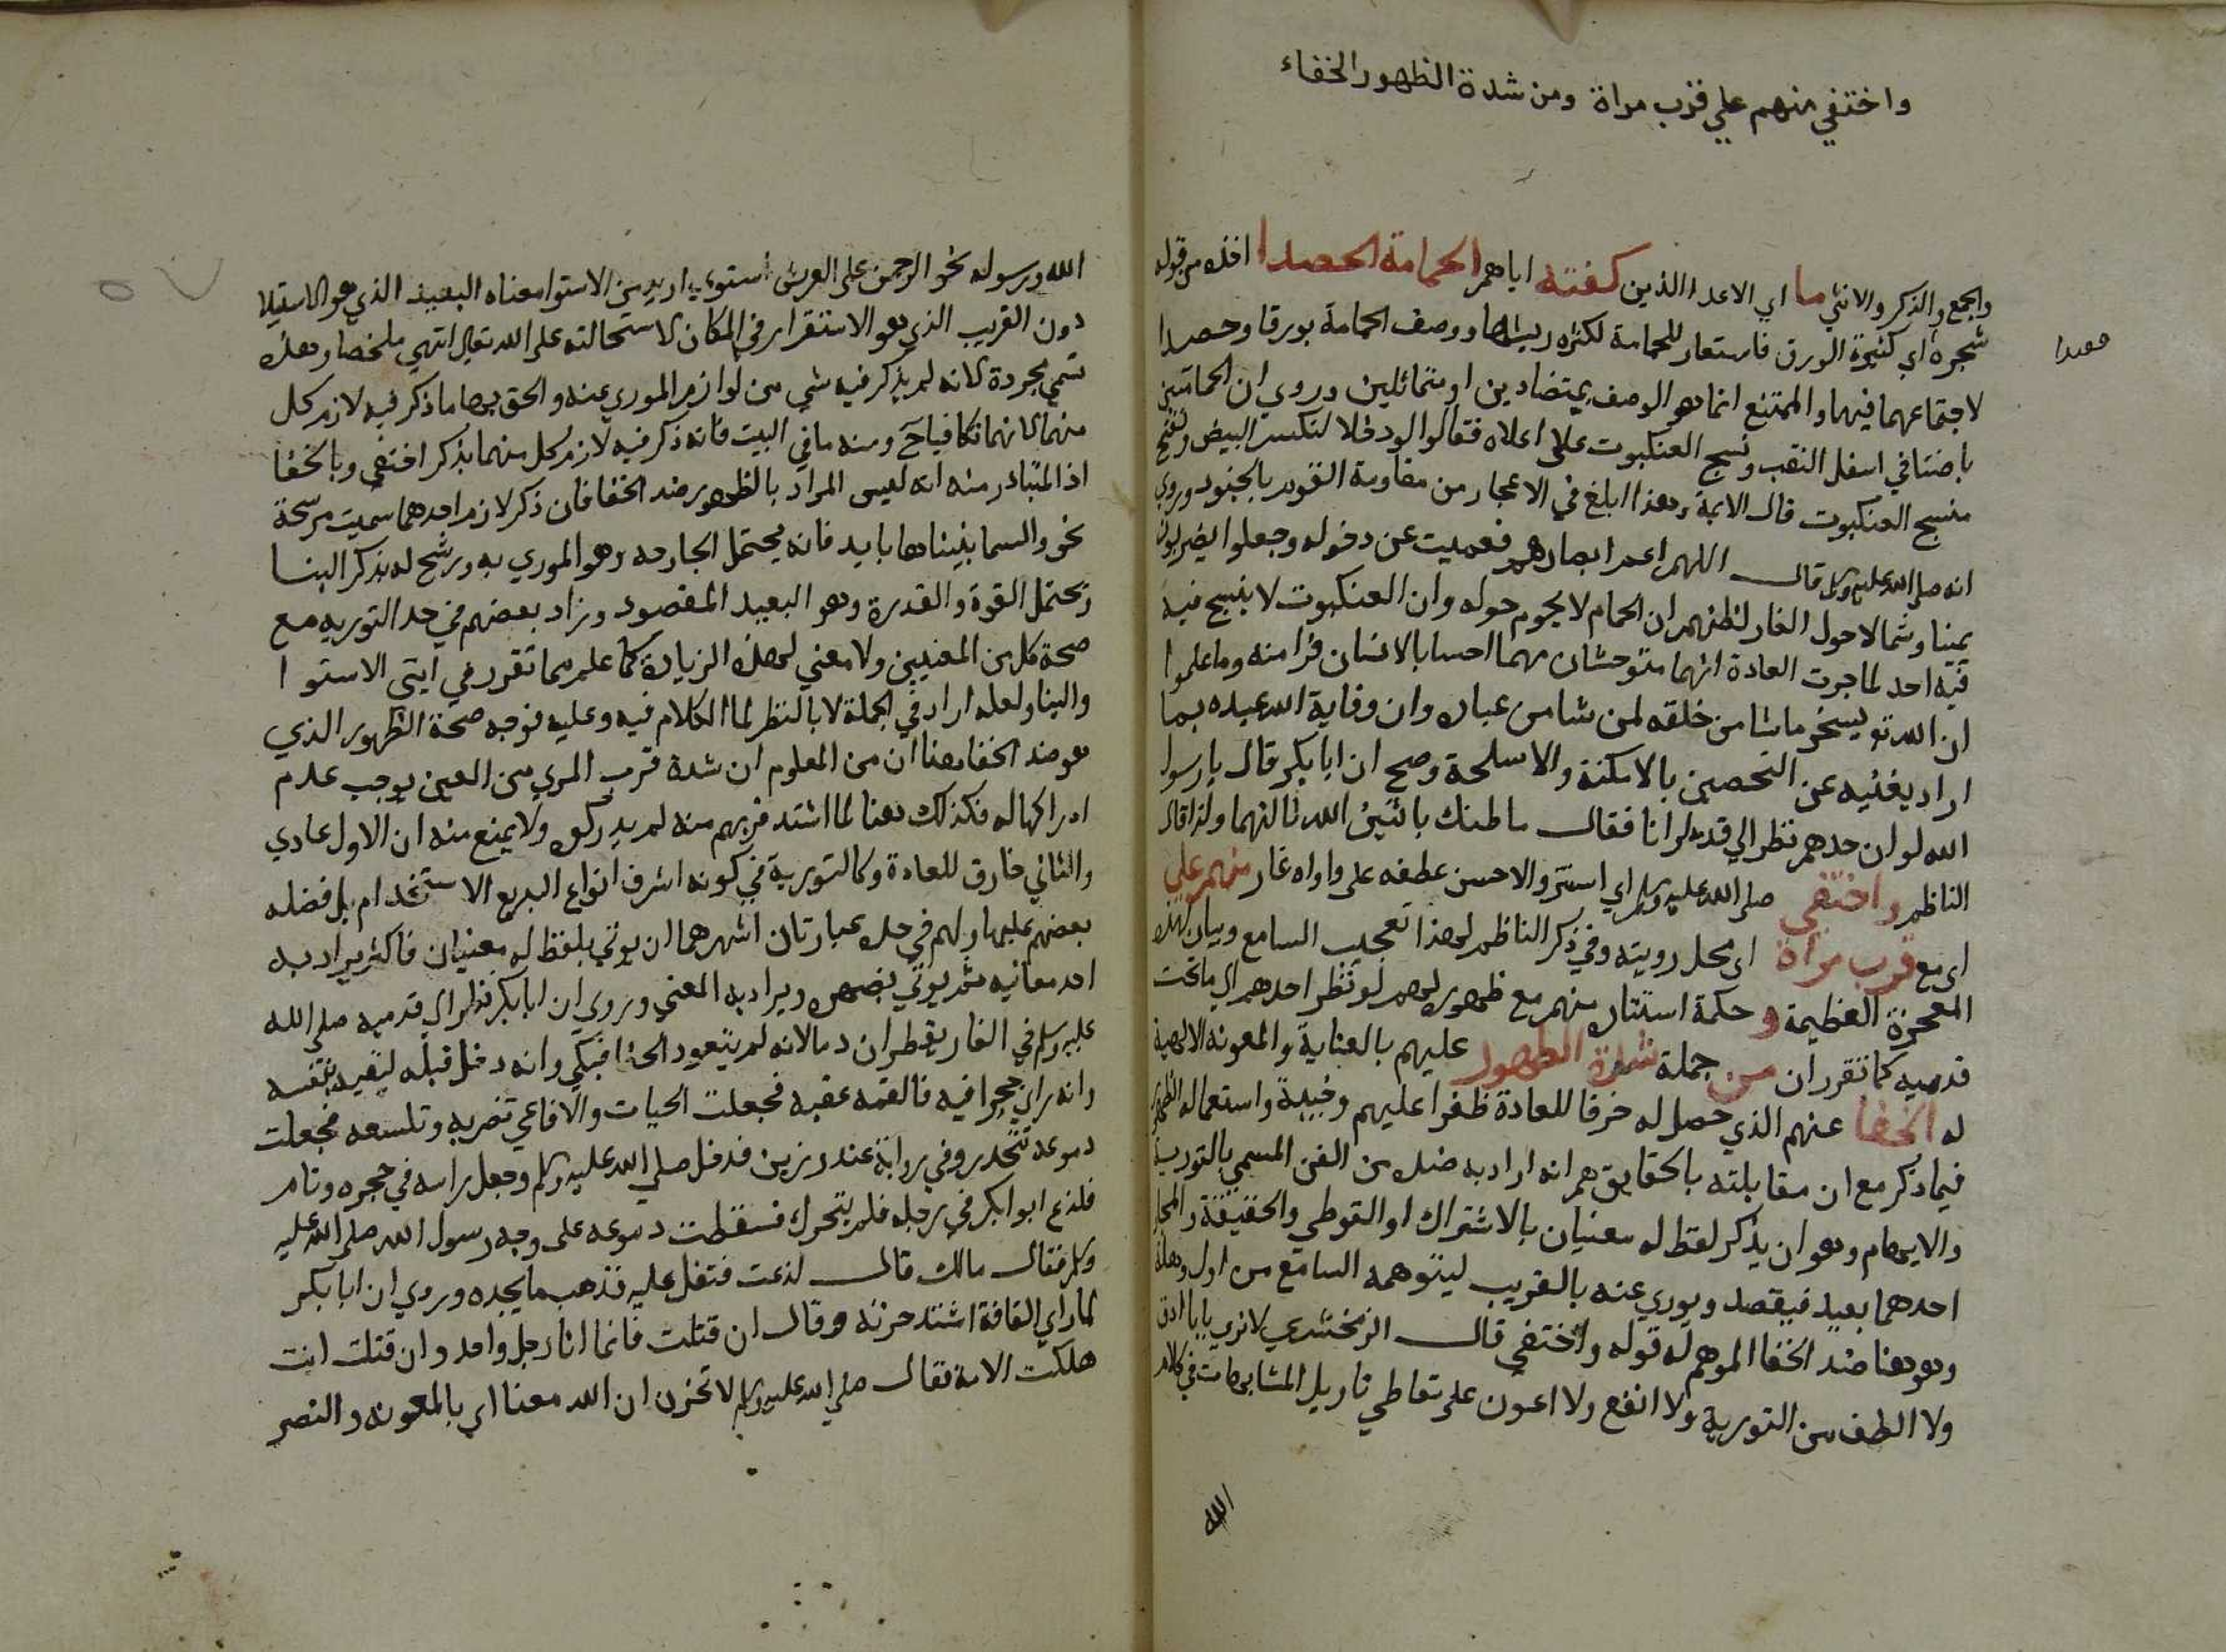 واختفي منهم علي قرب مراة ومن شدة الظهور الخفاء
والجمع والذكر والانثي ما اي الاعدا الذين كفته اياهم الحمامة الحصدا اخذه من قوله
شجره اي كثيرة الورق فاستعار للحمامة لكثره ريشها ووصف الحمامة بورقا وحصدا
لاجتماعهما فيها والممتنع انما هو الوصف بمتضادين او متماثلين وروي ان الحمامتين
باضتا في اسفل النقب ونسج العنكبوت على اعلاه فقالوا لو دخلا لتكسر البيض وتفسخ
منسج العنكبوت قال الايمة وهذا ابلغ في الاعجاز من مقاومة القوم بالجنود وروي
انه صلى الله عليه وسلم قال اللهم اعم ابصارهم فعميت عن دخوله وجعلوا يضربون
يمينا وشمالا حول الغار لظنهم ان الحمام لا يحوم حوله وان العنكبوت لا ينسج فيه
فيه احد لما جرت العادة انهما متوحشان مهما احسا بالانسان فرا منه وما علموا
ان الله تع يسخر ما شا من خلقه لمن شا من عباده وان وقاية الله عبده بما
اراد يغنيه عن التحصين بالامكنة والاسلحة وصح ان ابا بكر قال يا رسول
الله لو ان احدهم نظر الي قدمه لرانا فقال ما ظنك باثنين الله ثالثهما ولذا قال
الناظم واختفي صلى الله عليه وسلم اي استتر والاحسن عطفه على واواه غار منهم علي
اي مع قرب مراة اي محل رويته وفي ذكر الناظم لهذا تعجيب السامع وبيان لهذه
المعجزة العظيمة وحكمة استتاره منهم مع ظهوره لهم لو نظر احدهم الي ما تحت
قدميه كما تقرر ان من جملة شدة الظهور عليهم بالعناية والمعونه الالهية
له الخفا عنهم الذي حصل له خرقا للعادة ظفرا عليهم وخيبة واستعماله الظهور
فيما ذكر مع ان مقابلته بالخفا يوهم انه اراد به ضده من الفن المسمي بالتورية
والايهام وهو ان يذكر لفظ له معنيان بالاشتراك او التوطي والحقيقة والمجاز
احدهما بعيد فيقصد ويوري عنه بالقريب ليتوهمه السامع من اول وهلة
وهو هنا ضد الخفا الموهم له قوله واختفي قال الزمخشري لا نري بابا ادق
ولا الطف من التورية ولا انفع ولا اعون على تعاطي تاويل المشابهات في كلام
الله
الله ورسوله نحو الرحمن على العرش استوي اريد من الاستوا معناه البعيد الذي هو الاستيلا
دون القريب الذي هو الاستقرار في المكان لاستحالته على الله تعالى انتهي ملخصا وهذه
تسمي مجردة لانه لم يذكر فيه شي من لوازم الموري عنه والحق بها ما ذكر فيه لازم كل
منهما لانهما تكافيا ح ومنه ما في البيت فانه ذكر فيه لازم كل منهما بذكر اختفي وبالخفا
اذ المتبادر منه انه ليس المراد بالظهور ضد الخفا فان ذكر لازم احدهما سميت مرسحة
نحو والسما بنيناها بايد فانه يحتمل الجارحه وهو الموري به ورشح له بذكر البنا
وتحتمل القوة والقدرة وهو البعيد المقصود وزاد بعضهم في حد التوريه مع
صحة كل من المعنيين ولا معني لهذه الزيادة كما علم مما تقرر في ايتي الاستوا
والبنا ولعله اراد في الجملة لا بالنظر لما الكلام فيه وعليه فوجه صحة الظهور الذي
هو ضد الخفا هنا ان من المعلوم ان شدة قرب المري من العين يوجب عدم
ادراكها له فكذلك هنا لما اشتد قربهم منه لم يدركوه ولا يمنع منه ان الاول عادي
والثاني خارق للعادة وكالتورية في كونه اشرف انواع البديع الاستخدام بل فضله
بعضهم عليها ولهم في حده عبارتان اشهرهما ان يوتي بلفظ له معنيان فاكثر يراد به
احد معانيه ثم يوتي بضميره ويراد به المعني وروي ان ابا بكر نظر الي قدميه صلى الله
عليه وسلم في الغار يقطران دما لانه لم يتعود الحفا فبكي وانه دخل قبله ليقيه بنفسه
وانه راي جحرا فيه فالقمه عقبه فجعلت الحيات والافاعي تضربه وتلسعه فجعلت
دموعه تتحدر وفي رواية عند رزين فدخل صلى الله عليه وسلم وجعل راسه في حجره ونام
فلذع ابوا بكر في رجله فلم يتحرك فسقطت دموعه على وجه رسول الله صلى الله عليه
وسلم فقال مالك قال لذعت فتفل عليه فذهب ما يجده وروي ان ابا بكر
لما راي القافة اشتد حزنه وقال ان قتلت فانما انا رجل واحد وان قتلت انت
هلكت الامة فقال صلى الله عليه وسلم لا تحزن ان الله معنا اي بالمعونه والنصر